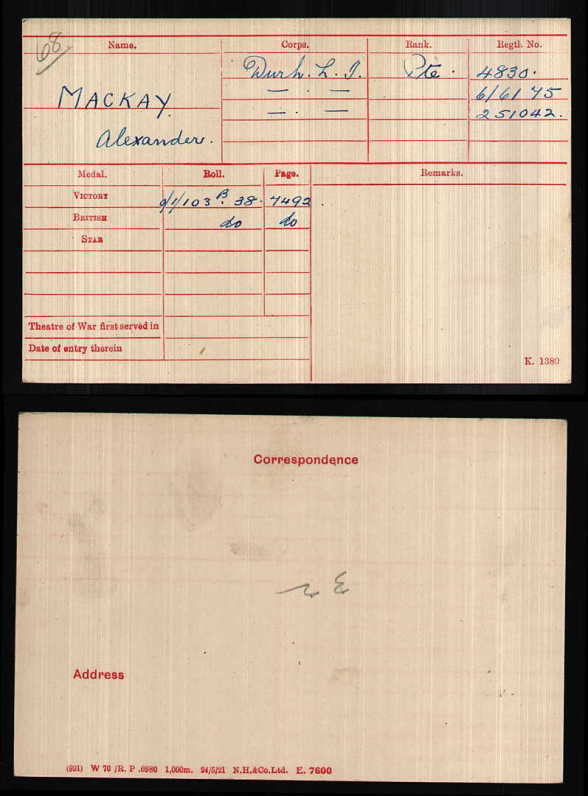 68
Name. Corps. Rank. Regtl. No.
MACKAY Durh. L. I. Pte. 4830.
Alexander. — . — 6/6175
— . — 251042.
Medal. Roll. Page. Remarks.
VICTORY D/1/103 B. 38. 7492.
BRITISH do do
STAR
Theatre of War first served in
Date of entry therein
K. 1380
Correspondence
Address
(901) W 70 /R. P .6980 1,000m. 24/5/21 N.H.&Co.Ltd. E. 7600